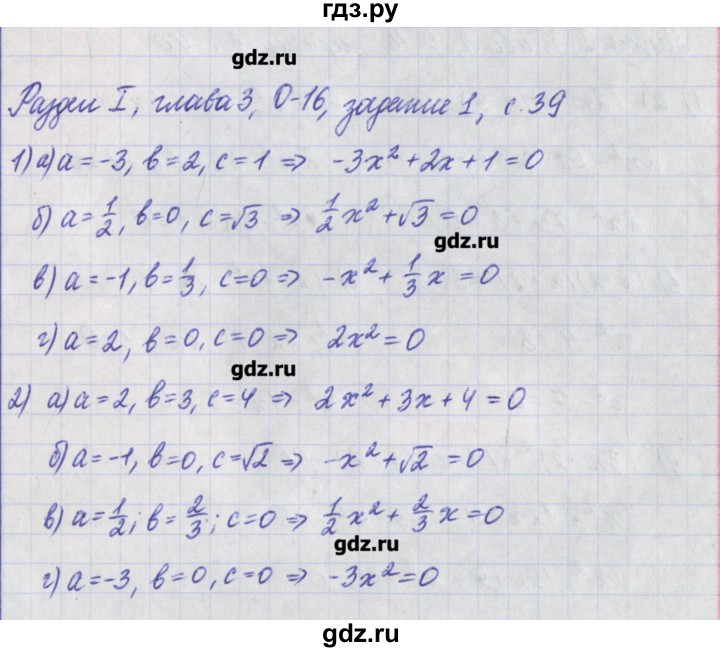 гдз.ру
gdz.ru
Раздел I, глава 3, О-16, задание 1, с. 39
1) а) a = -3, в = 2, c = 1 ⇒ -3x² + 2x + 1 = 0
б) a = 1/2, в = 0, c = √3 ⇒ 1/2 x² + √3 = 0
gdz.ru
в) a = -1, в = 1/3, c = 0 ⇒ -x² + 1/3 x = 0
г) a = 2, в = 0, c = 0 ⇒ 2x² = 0
gdz.ru
2) а) a = 2, в = 3, c = 4 ⇒ 2x² + 3x + 4 = 0
б) a = -1, в = 0, c = √2 ⇒ -x² + √2 = 0
в) a = 1/2; в = 2/3; c = 0 ⇒ 1/2 x² + 2/3 x = 0
gdz.ru
г) a = -3, в = 0, c = 0 ⇒ -3x² = 0
gdz.ru